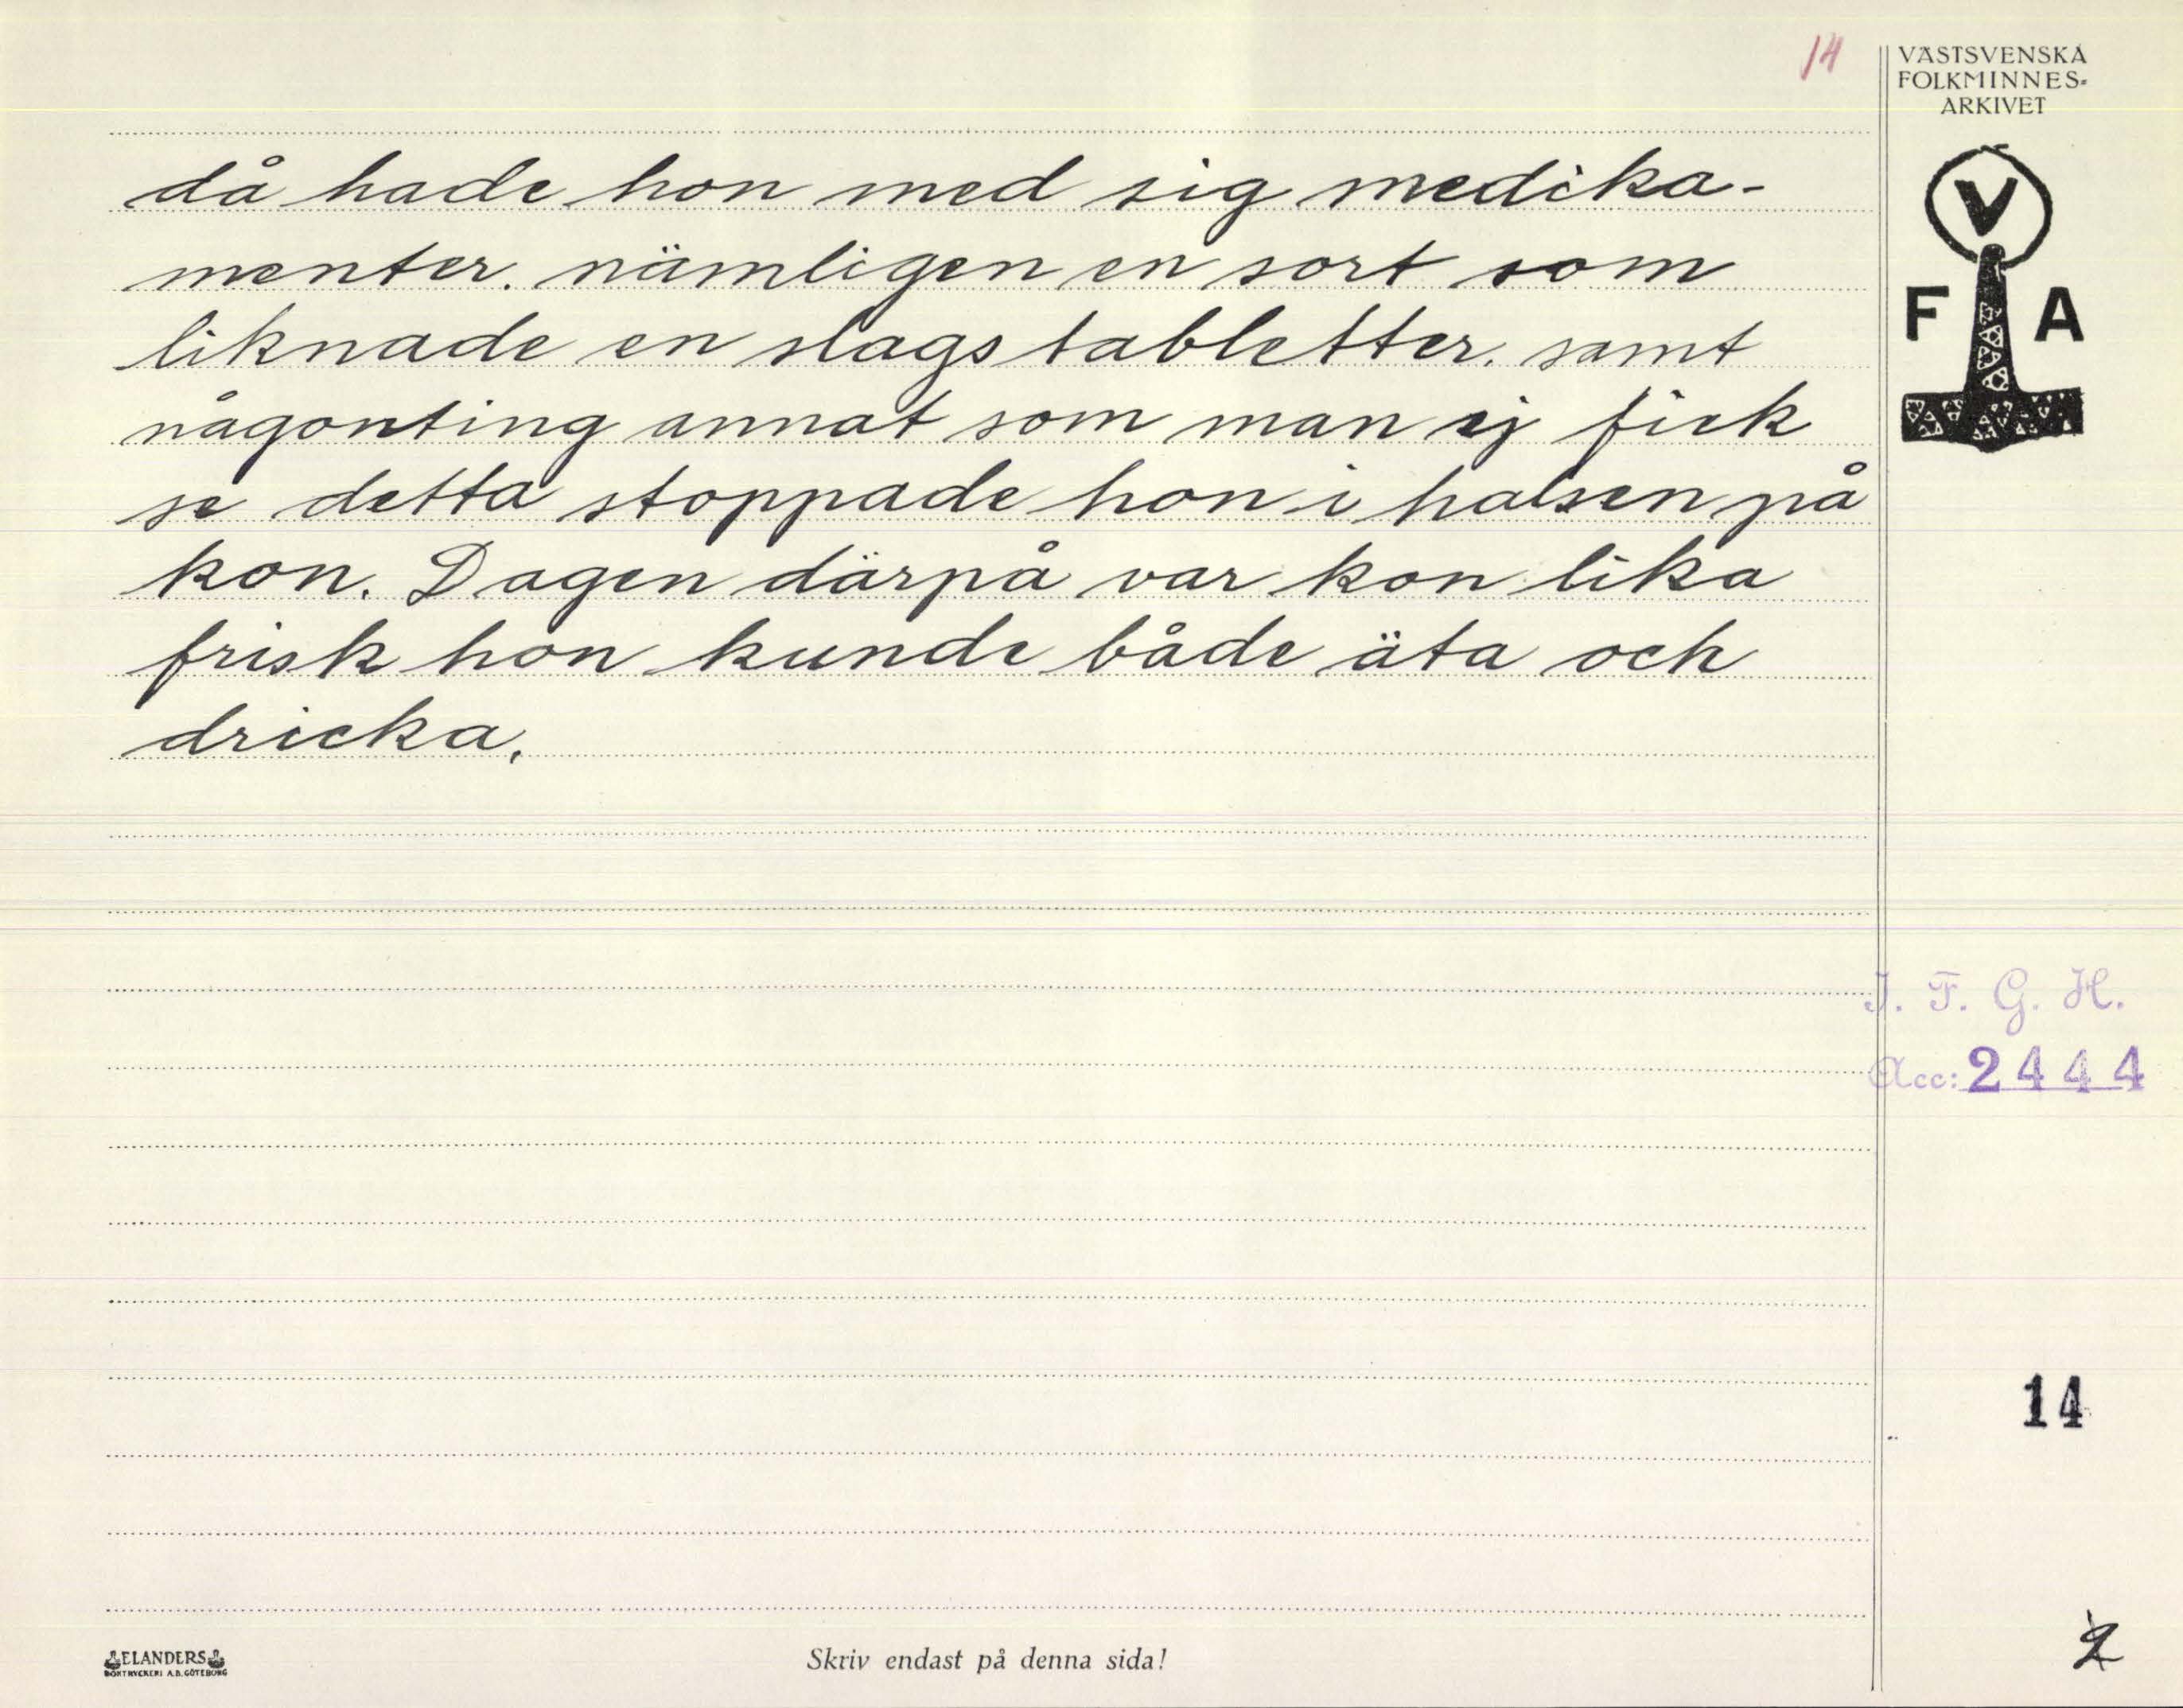 14
VÄSTSVENSKA
FOLKMINNES-
ARKIVET
V
F A
då hade hon med sig medika-
menter. nämligen en sort som
liknade en slags tabletter. samt
någonting annat som man ej fick
se detta stoppade hon i halsen på
kon. Dagen därpå var kon lika
frisk hon kunde både äta och
dricka.
I. F. G. H.
Acc: 2444
14
ELANDERS
BOKTRYCKERI A.B. GÖTEBORG
Skriv endast på denna sida!